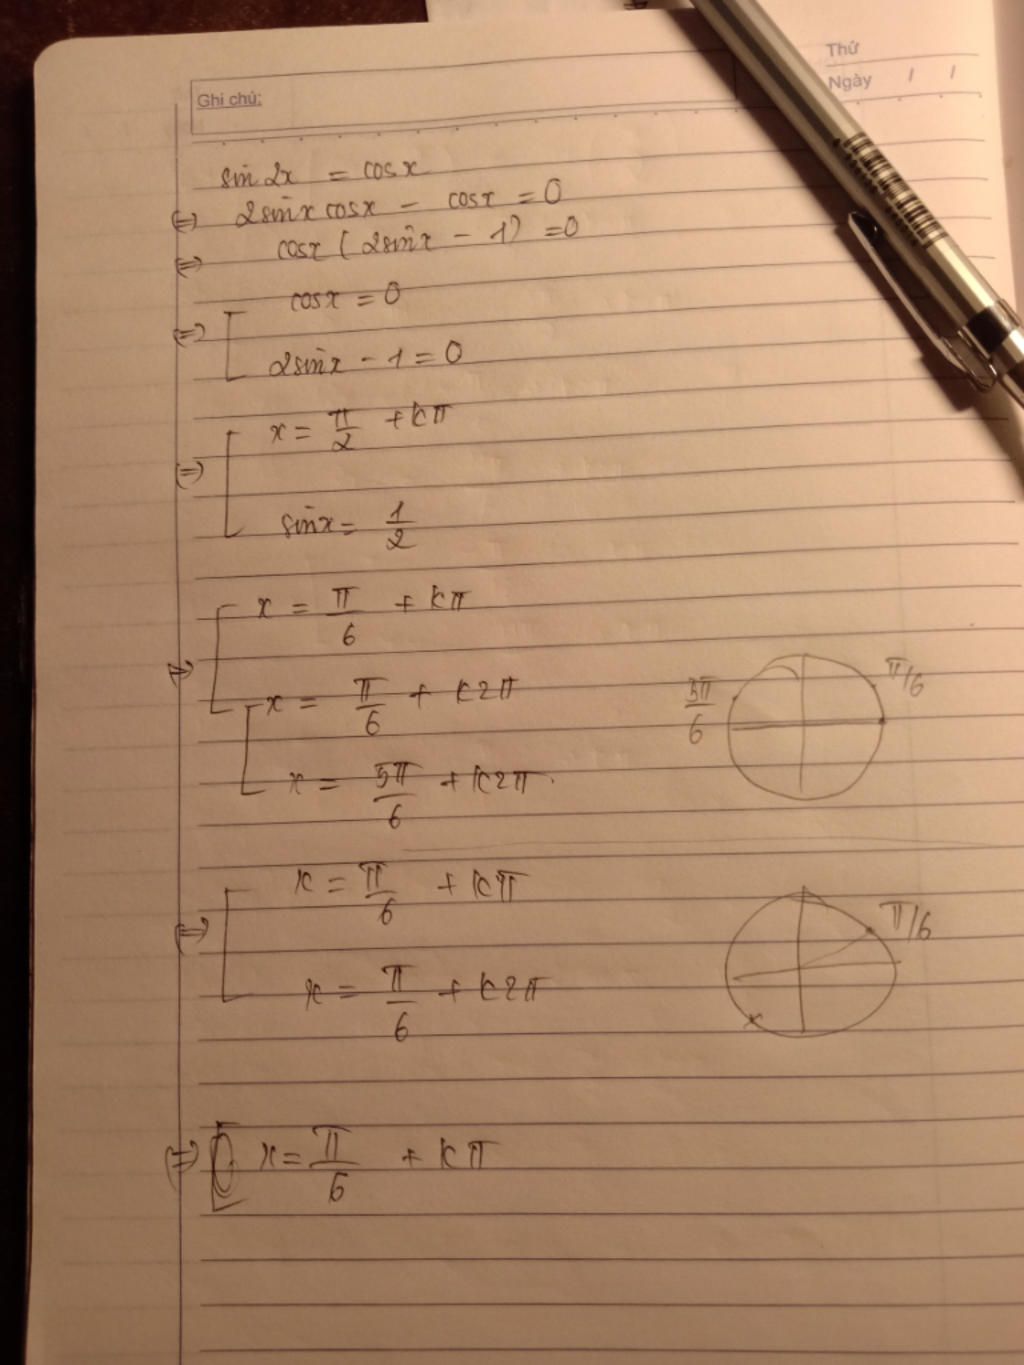 Thứ
Ngày / /
Ghi chú:
sin 2x = cosx
⇔ 2sinx cosx - cosx = 0
⇔ cosx (2sinx - 1) = 0
⇔ [ cosx = 0
2sinx - 1 = 0
⇔ [ x = π/2 + kπ
sinx = 1/2
⇔ [ x = π/6 + kπ
[ x = π/6 + k2π
x = 5π/6 + k2π
5π/6 π/6
⇔ [ x = π/6 + kπ
x = π/6 + k2π
π/6
⇔ [ x = π/6 + kπ